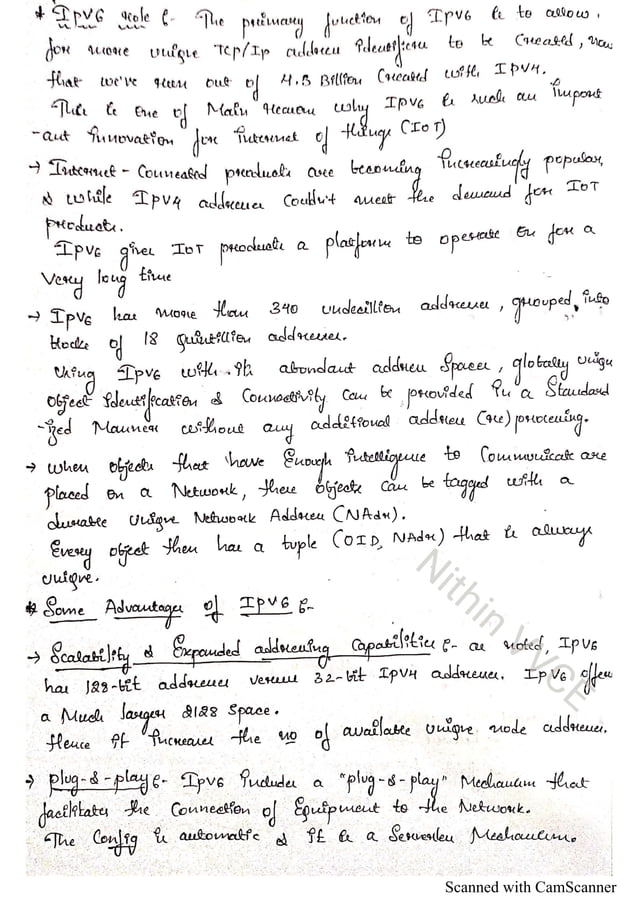 * IPV6 role :- The primary function of IPV6 is to allow
for more unique TCP/IP address identifiers to be created, now
that we've run out of 4.3 Billion created with IPV4.
This is one of Main reason why IPV6 is such an import
-ant innovation for internet of things (IOT)
→ Internet-Connected products are becoming increasingly popular,
& while IPV4 addresses couldn't meet the demand for IOT
products.
IPV6 gives IOT products a platform to operate on for a
very long time
→ IPV6 has more than 340 undecillion addresses, grouped into
blocks of 18 quintillion addresses.
Using IPV6 with its abondant address spaces, globally uniqu
object identification & connectivity can be provided in a Standard
-ized Manner without any additional address (re)processing.
→ when objects that have Enough intelligence to Communicate are
placed on a Network, these objects can be tagged with a
durable unique Network Address (NAdr).
Every object then has a tuple (OID, NAdr) that is always
unique.
* Some Advantages of IPV6 :-
→ Scalability & Expanded addressing Capabilities :- as noted, IPV6
has 128-bit addresses versus 32-bit IPV4 addresses. IPV6 offers
a Much larger 2128 Space.
Hence it increases the no of available unique node addresses.
→ plug-&-play :- IPV6 includes a "plug-&-play" Mechanism that
facilitates the Connection of Equipment to the Network.
The Config is automatic & it is a Serverless Mechanism.
Nithin VVCE
Scanned with CamScanner